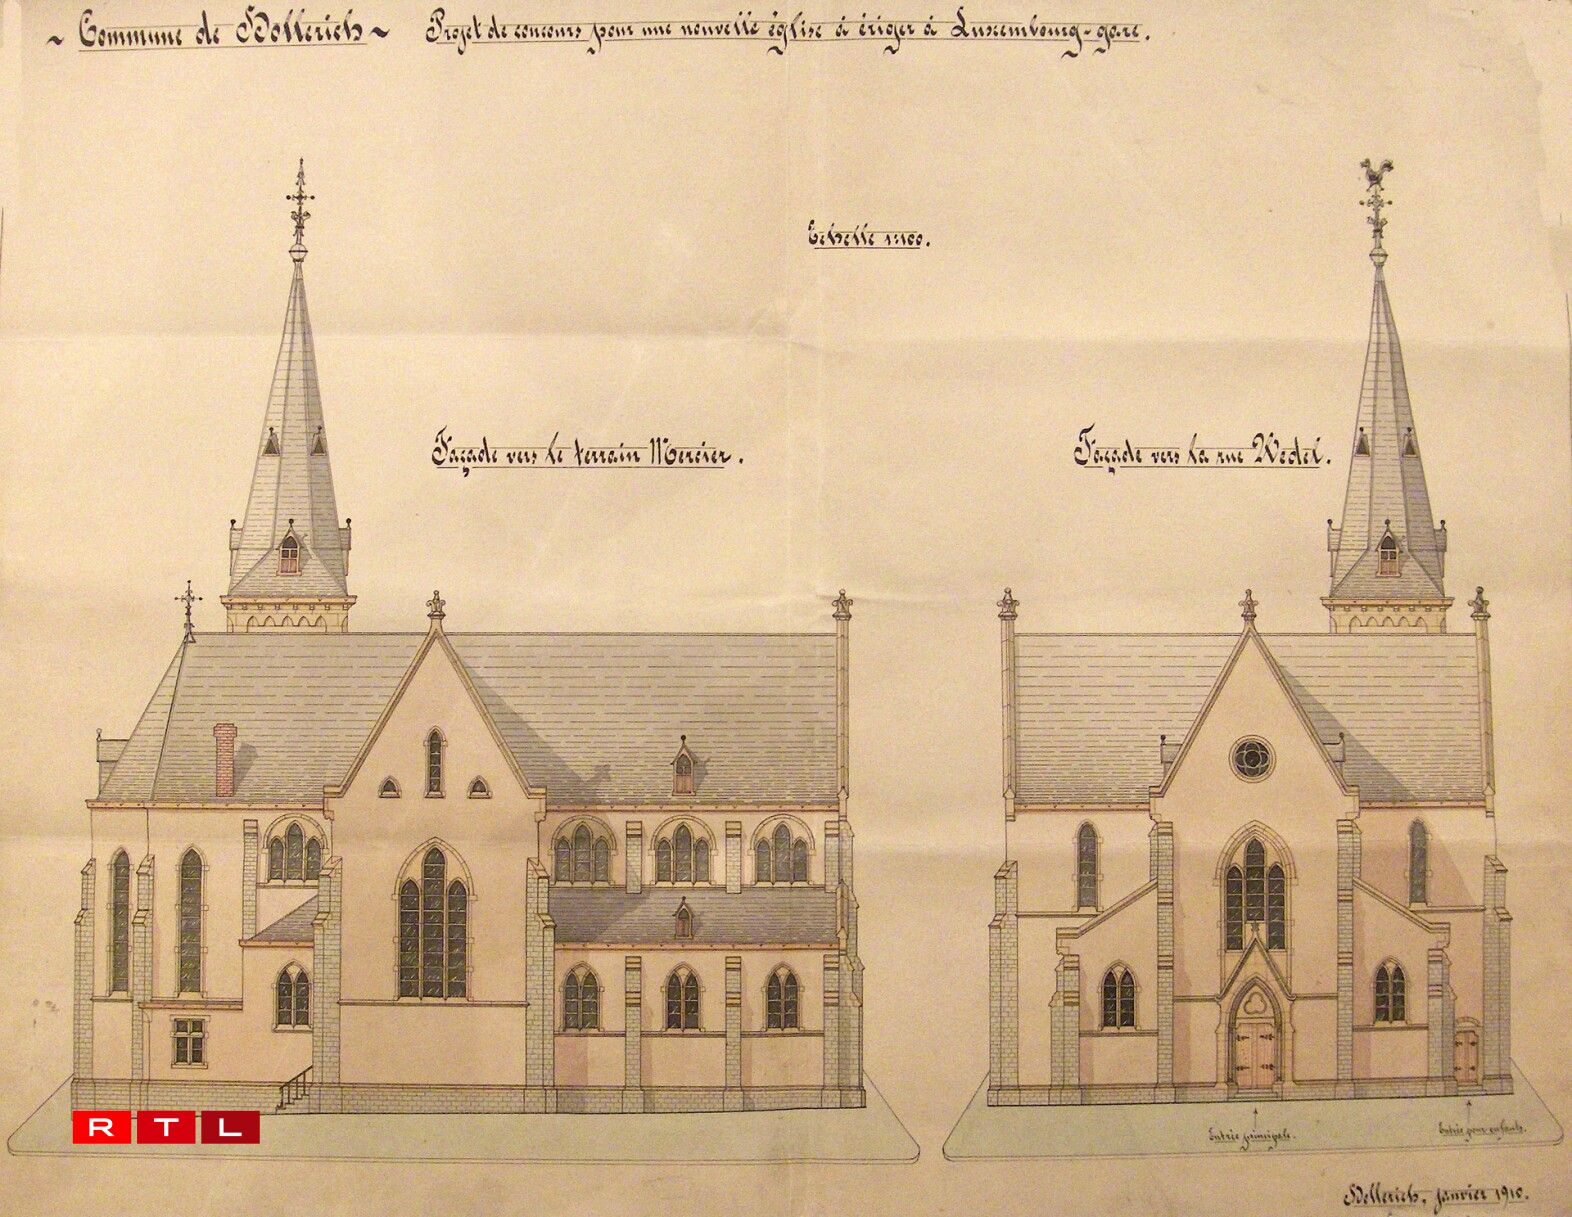 ~ Commune de Hollerich ~ Projet de concours pour une nouvelle église à ériger à Luxembourg-gare.
Echelle 1:100.
Façade vers le terrain Mercier.
Façade vers la rue Wedel.
Entrée principale.
Entrée pour enfants.
RTL
Hollerich, janvier 1910.